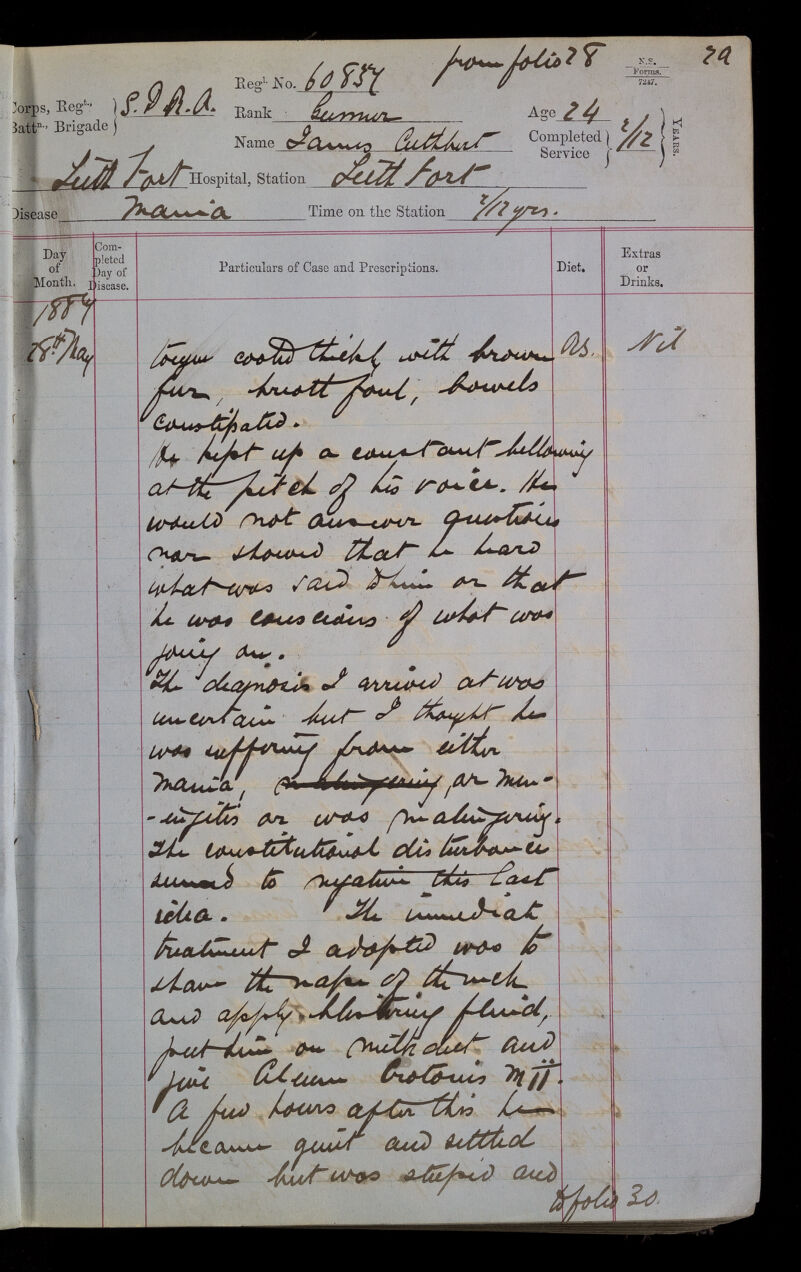 from folio 28
29
N.S.
Forms.
7247.
Corps, Regt.,
Battn., Brigade
S.D.R.A.
Regl. No. 60837
Rank Gunner
Name James Cuthbert
Age 24
Completed
Service 2/12
YEARS.
Leith Fort Hospital, Station Leith Fort
Disease Mania Time on the Station 2/12 yrs.
Day of Month.
Completed Day of Disease.
Particulars of Case and Prescriptions.
Diet.
Extras or Drinks.
1887
28th May
Nil
tongue coated thickly with brown
fur, breath foul, bowels
constipated.
He kept up a constant bellowing
at the pitch of his voice. He
would not answer questions
nor showed that he heard
what was said to him or that
he was conscious of what was
going on.
The diagnosis I arrived at was
uncertain but I thought he
was suffering from either
Mania, malingering, or Men-
-ingitis or was malingering.
The constitutional disturbance
seemed to negative this last
idea. The immediate
treatment I adopted was to
shave the nape of the neck
and apply blistering fluid,
put him on milk diet and
give Oleum Crotonis m ii.
A few hours after this he
became quiet and settled
down but was stupid and
to folio 30.